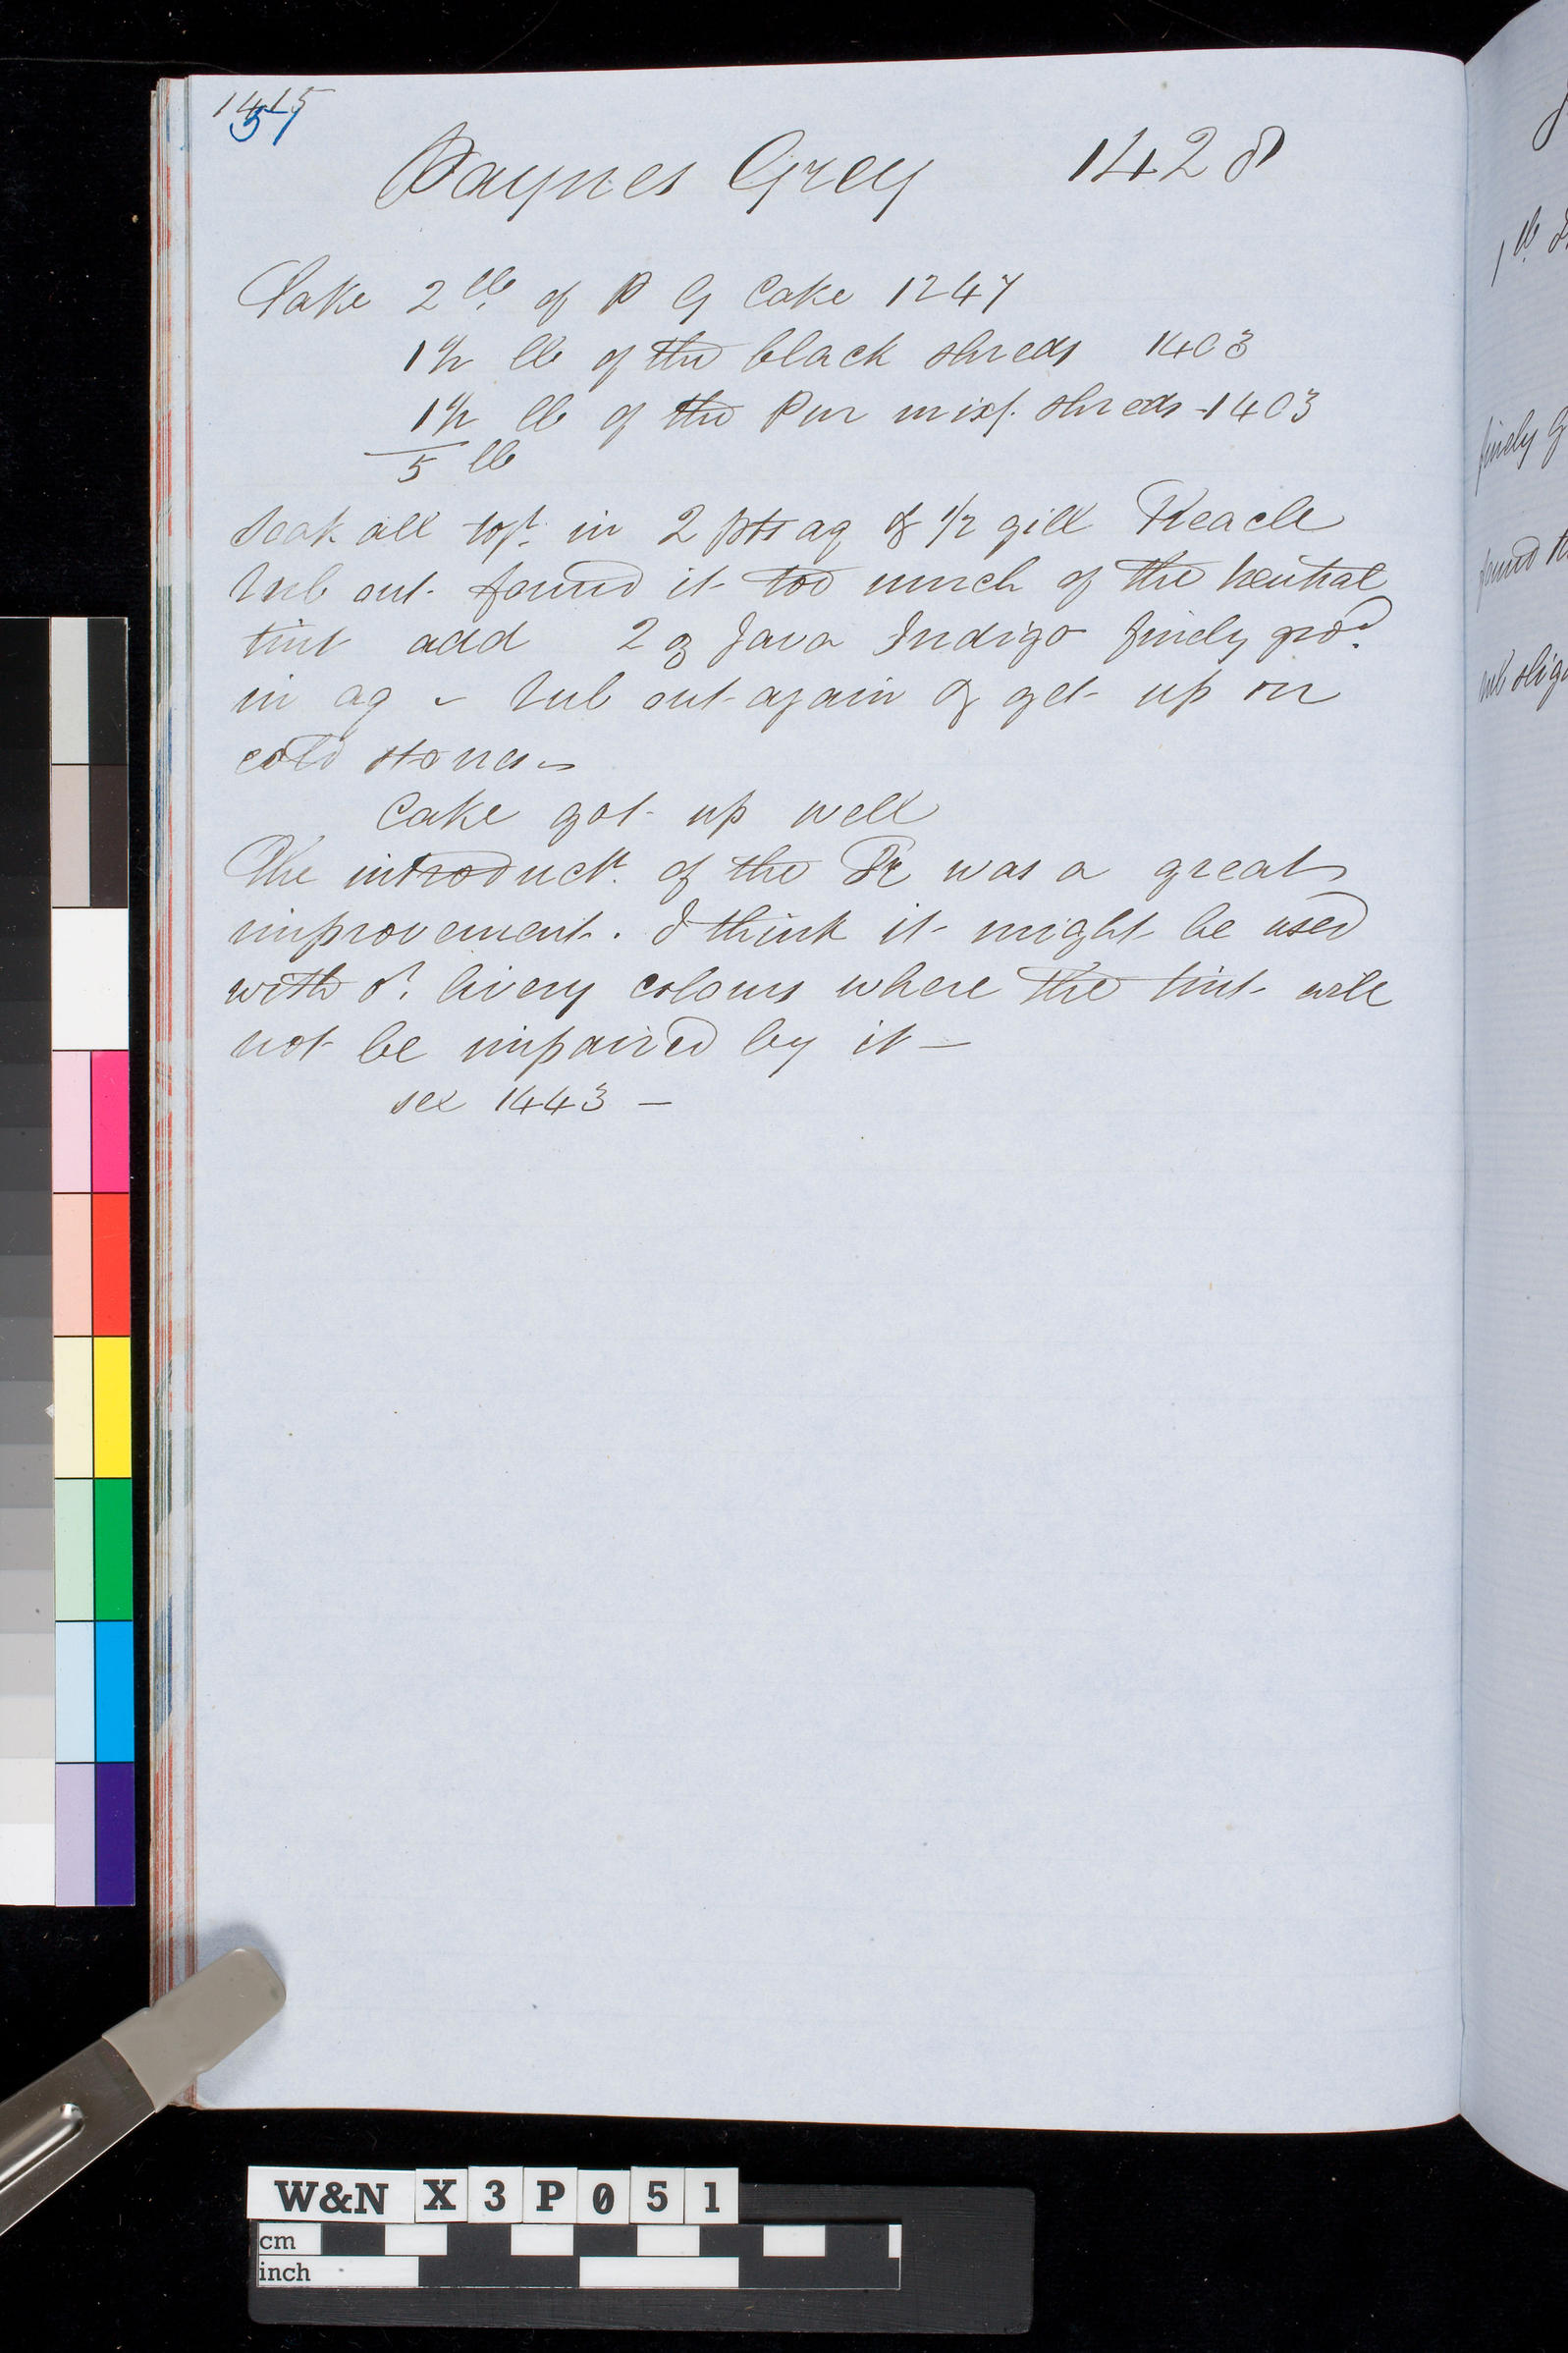 1415
51
Paynes Grey 1428
Take 2 lb. of P G Cake 1247
1 1/2 lb of the black shreds 1403
1 1/2 lb of the Pur mixt. shreds - 1403
5 lb
Soak all togr. in 2 pts aq & 1/2 gill Treacle
rub out. found it too much of the neutral
tint add 2 oz Java Indigo finely grod.
in aq - rub out again & get up on
cold stones -
Cake got up well
The introductn. of the Tr was a great
improvement. I think it might be used
with or. livery colours where the tint will
not be impaired by it -
see 1443 -
1 lb
finely G
found th
rub slig
W&N X 3 P 0 5 1
cm
inch